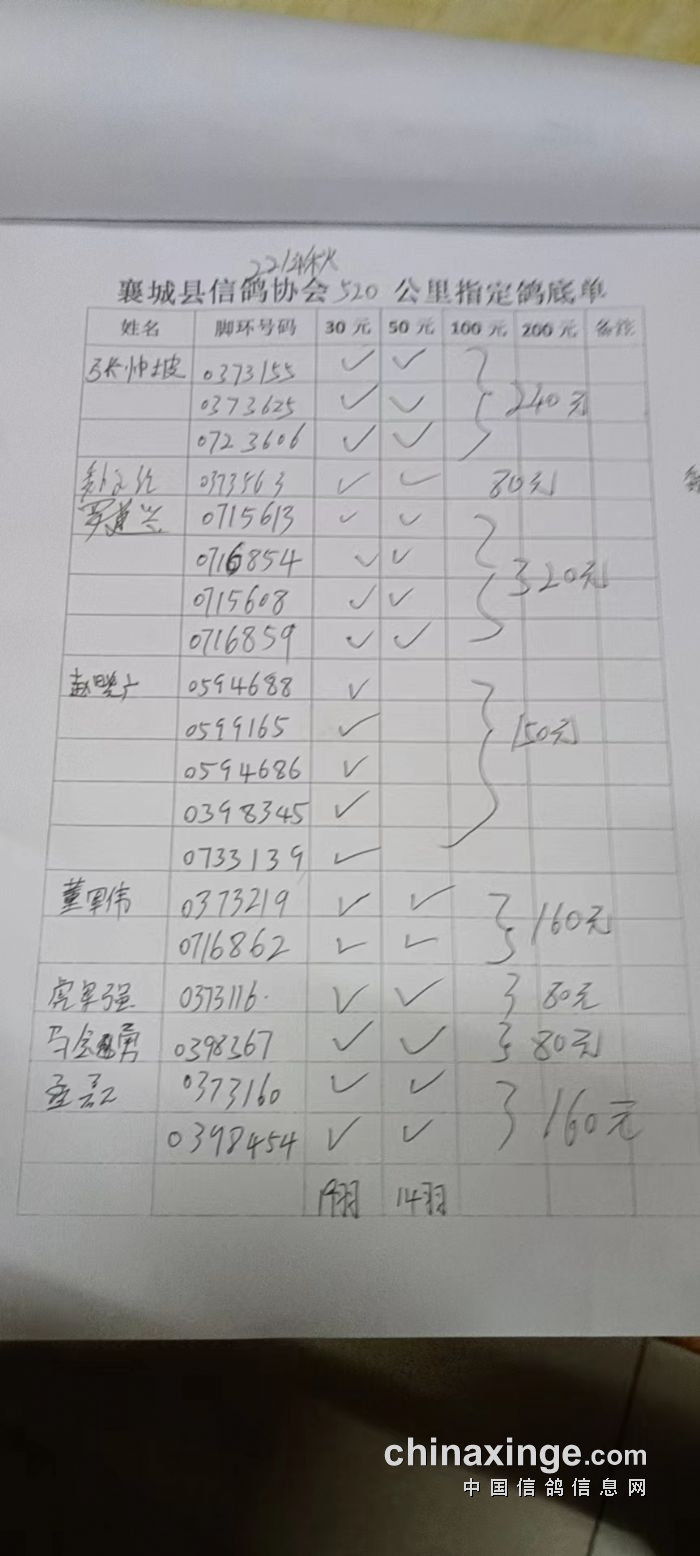 22年秋
襄城县信鸽协会520公里指定鸽底单
姓名 脚环号码 30元 50元 100元 200元 备注
张帅坡 0373155 ✓ ✓
0373625 ✓ ✓ 240元
0723606 ✓ ✓
0373563 ✓ ✓ 80元
罗道兴 0715613 ✓ ✓
0716854 ✓ ✓ 320元
0715608 ✓ ✓
0716859 ✓ ✓
赵 0594688 ✓
0599165 ✓ 150元
0594686 ✓
0398345 ✓
0733139 ✓
董军伟 0373219 ✓ ✓ 160元
0716862 ✓ ✓
虎军强 0373116 ✓ ✓ 80元
马 勇 0398367 ✓ ✓ 80元
0373160 ✓ ✓ 160元
0398454 ✓ ✓
19羽 14羽
chinaxinge.com
中国信鸽信息网